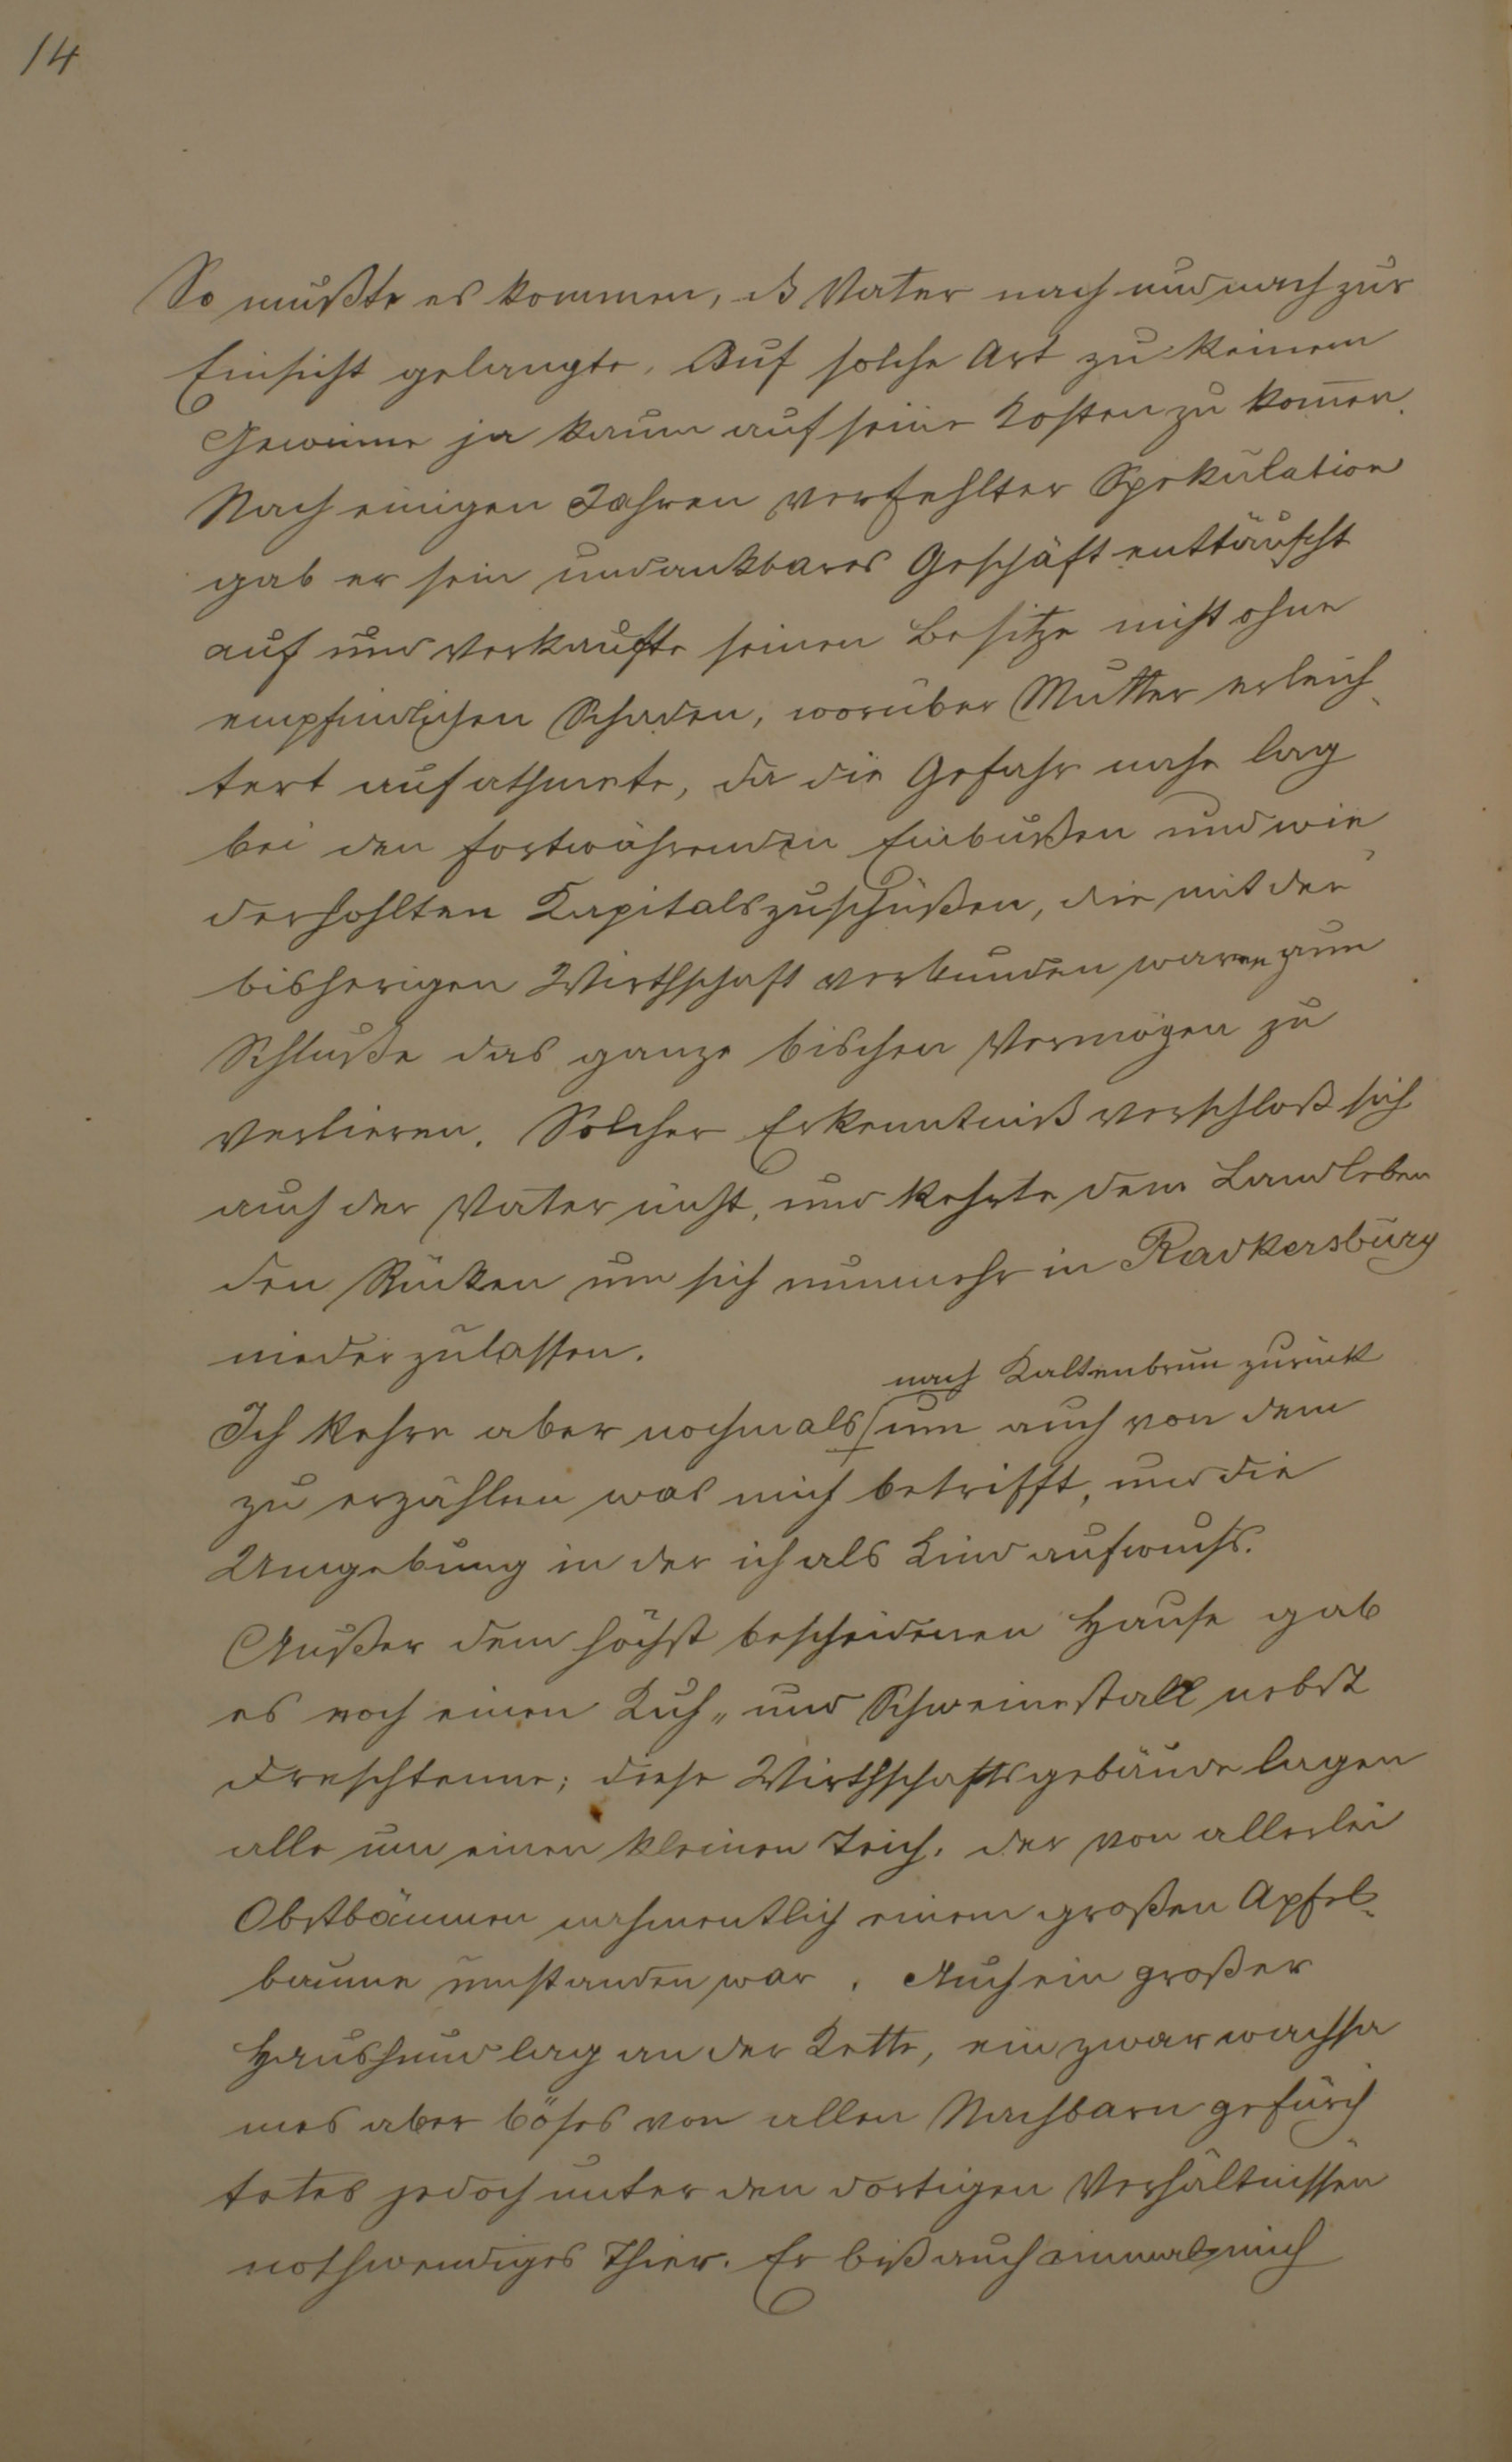 14
So mußte es kommen, dß Vater nach und nach zur
Einsicht gelangte, Auf solche Art zu keinem
Gewinne ja kaum auf seine Kosten zu kom̅en.
Nach einigen Jahren verfehlter Spekulation
gab er sein undankbares Geschäft enttäuscht
auf und verkaufte seinen Besitze nicht ohne
empfindlichen Schaden, worüber Mutter erleich
tert aufathmete, da die Gefahr nahe lag
bei den fortwährenden Einbußen und wie
derhohlten Kapitalszuschüßen, die mit der
bisherigen Wirthschaft verbunden waren zum
Schluße das ganze bischen Vermögen zu
verlieren. Solcher Erkenntniß verschloß sich
auch der Vater nicht, und kehrte dem Landleben
den Rücken um sich nunmehr in Radkersburg
niederzulassen.
nach Kaltenbrun zurück
Ich kehre aber nochmals um auch von dem
zu erzählen was mich betrifft, und die
Umgebung in der ich als Kind aufwuchs.
Außer dem höchst bescheidenen Hause gab
es noch einen Kuh„ und Schweinestall nebst
Dreschtenne; diese Wirthschaftsgebäude lagen
alle um einen kleinen Teich, der von allerlei
Obstbäumen nahmentlich einem großen Apfel-
baume umstanden war. Auch ein großer
Haushund lag an der Kette, ein zwar wachsa
mes aber böses von allen Nachbarn gefürch
tetes jedoch unter den dortigen Verhältnissen
nothwendiges Thier. Er biß auch einmal mich